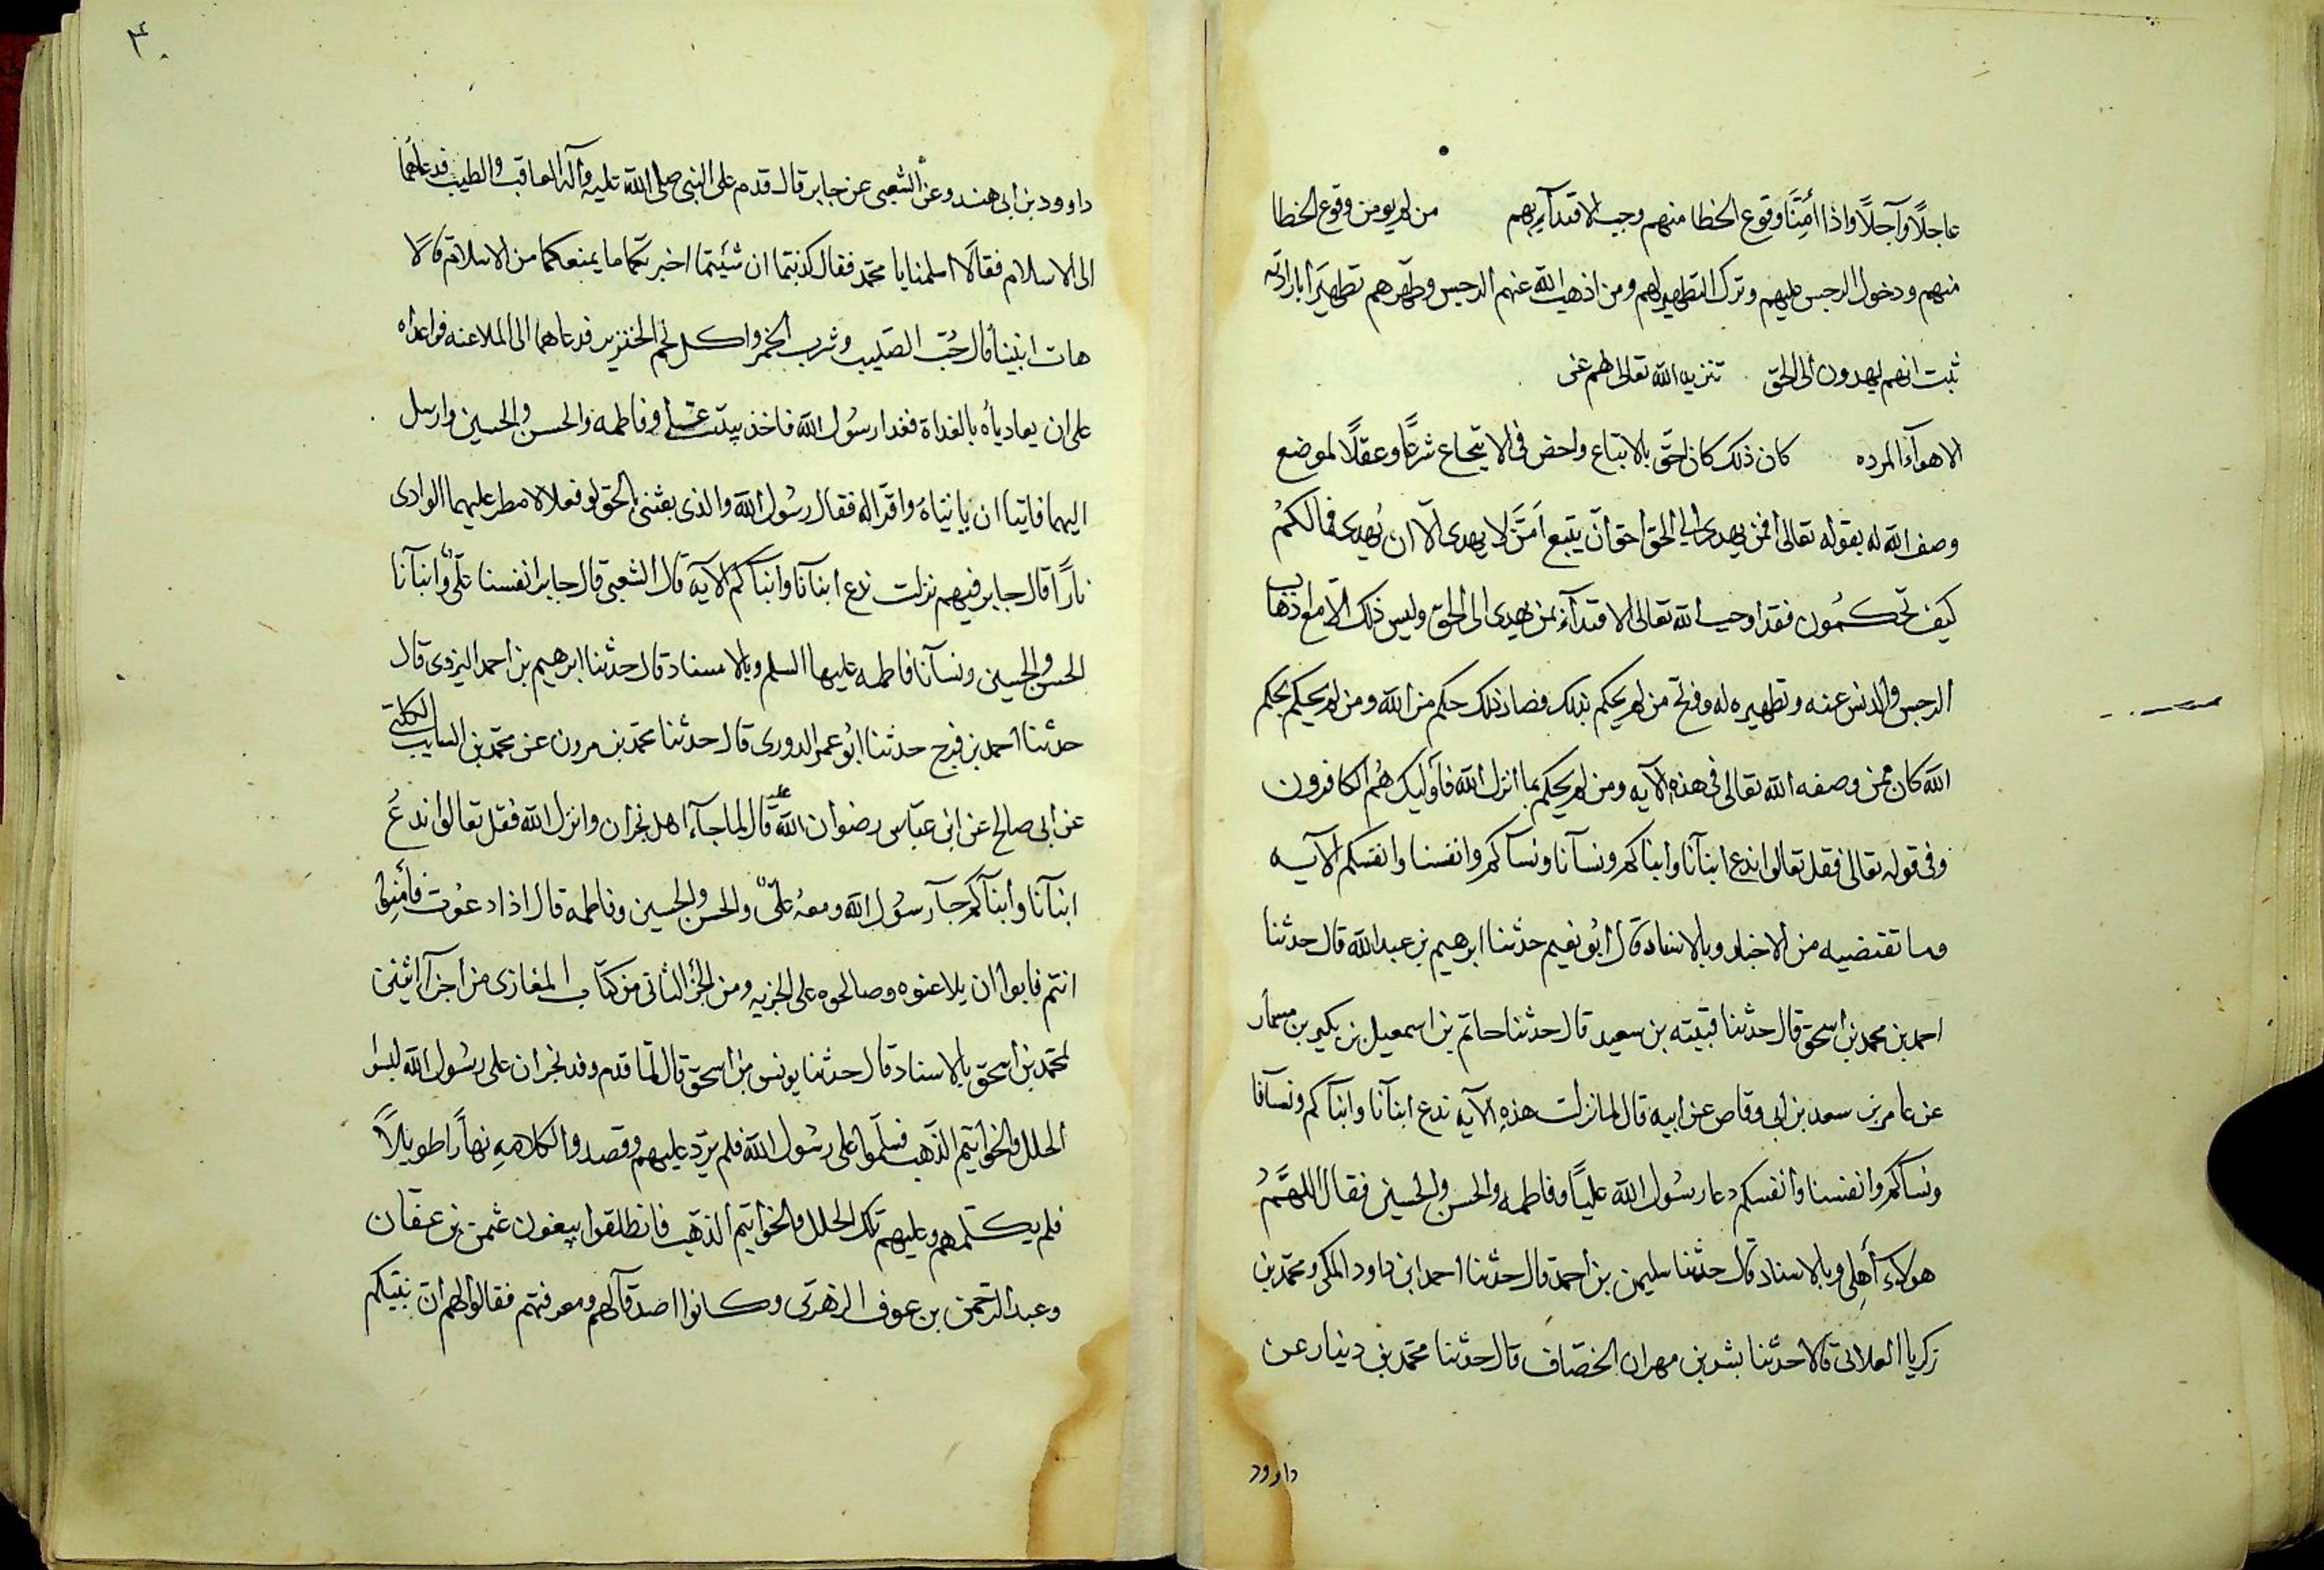 عاجلًا وآجلًا واذا أمِنَّا وقوع الخطا منهم وجب الاقتدآء بهم من لم يومن وقوع الخطا
منهم ودخول الرجس عليهم وترك التطهير لهم ومن اذهب الله عنهم الرجس وطهّرهم تطهيرًا بارادته
ثبت انهم يهدون الى الحق تنزيه الله تعالى لهم عن
الاهوآء المرده كان ذلك كان احقّ بالاتباع واحض فى الاتجاع شرعًا وعقلًا لموضع
وصف الله له بقوله تعالى افمن يهدى الى الحق احق انّ يتبع امّن لا يهدى الّا ان يُهدى فمالكم
كيف تحكمُون فقد اوجب الله تعالى الاقتدآء بمن يهدى الى الحق وليس ذلك الّا مع ذهاب
الرجس والدنس عنه وتطهيره له وفتح من لم يحكم بذلك فصار ذلك حكم من الله ومن لم يحكم بحكم
الله كان ممن وصفه الله تعالى فى هذه الآيه ومن لم يحكم بما انزل الله فآوليك هُم الكافرون
وفى قوله تعالى فقل تعالوا ندع ابنآنا وابناكم ونسآنا ونسآكم وانفسنا وانفسكم الآيه
وما تقتضيه من الاخبار وبالاسناد قال ابُو نعيم حدثنا ابرهيم بن عبد الله قال حدثنا
احمد بن محمد بن اسحق قال حدثنا قتيبته بن سعيد قال حدثنا حاتم بن اسمعيل بن بكير بن مسمار
عن عامر بن سعد بن ابى وقاص عن ابيه قال لما نزلت هذه الآيه ندع ابنآنا وابنآكم ونسآنا
ونسآكم وانفسنا وانفسكم دعا رسُول الله عليًا وفاطمه والحسن والحسين فقال اللهمّ
هولآء أهلى وبالاسناد قال حدثنا سليمن بن احمد قال حدثنا احمد ابن داود المكى ومحمد بن
زكريا العلانى قالا حدثنا بشر بن مهران الخصّاف قال حدثنا محمّد بن دينار عن
داوود
٤٠
داوود بن ابى هند وعن الشعبى عن جابر قال قدم على النبى صلى الله عليه وآله العاقب والطيب فدعاهُما
الى الاسلام فقالا اسلمنا يا محمّد فقال كذبتما ان شئيتما اخبرتكما ما يمنعكما من الاسلام قالا
هات انبينا قال حُبّ الصليب وشرب الخمر واكل لحم الخنزير فدعاهما الى الملاعنه فواعداه
على ان يعادياه بالغداة فغدا رسُول الله فاخذ بيد على وفاطمه والحسن والحسين وارسل
اليهما فابيا ان ياتياهُ واقرّا له فقال رسُول الله والذى بعثنى بالحق لو فعلا لامطر عليهما الوادى
نارًا قال جابر فيهم نزلت ندع ابنآنا وابنآكم الآيه قال الشعبى قال جابر انفسنا علىٌّ وابنآنا
الحسن والحسين ونسآنا فاطمه عليها السلم وبالاسناد قال حدثنا ابرهيم بن احمد اليزدى قال
حدثنا احمد بن فرج حدثنا ابُو عمر الدورى قال حدثنا محمّد بن مرون عن محمّد بن السايب الكلبى
عن ابى صالح عن ابن عبّاس رضوان الله عليه قال لما جآء اهل نجران وانزل الله فقل تعالوا ندعُ
ابنآنا وابنآكم جآء رسُول الله ومعهُ علىٌّ والحسن والحسين وفاطمه قال اذا دعوت فأمنوا
انتم فابوا ان يلاعنوه وصالحوه على الجزيه ومن الجزء الثانى من كتاب المغازى من اجزآء اثنين
لمحمّد بن اسحق بالاسناد قال حدثنا يونس بن اسحق قال لمّا قدم وفد نجران على رسُول الله لبسوا
الحلل والخواتيم الذّهب فسلّموا على رسُول الله فلم يردّ عليهم وقصدوا لكلامِهِ نهاًرا طويلًا
فلم يكلّمهم وعليهم تلك الحلل والخواتيم الذهب فانطلقوا يبغون عثمن بن عفان
وعبد الرّحمن بن عوف الزهرى وكانوا اصدقآ لهم ومعرفتهم فقالوا لهم ان نبيكم